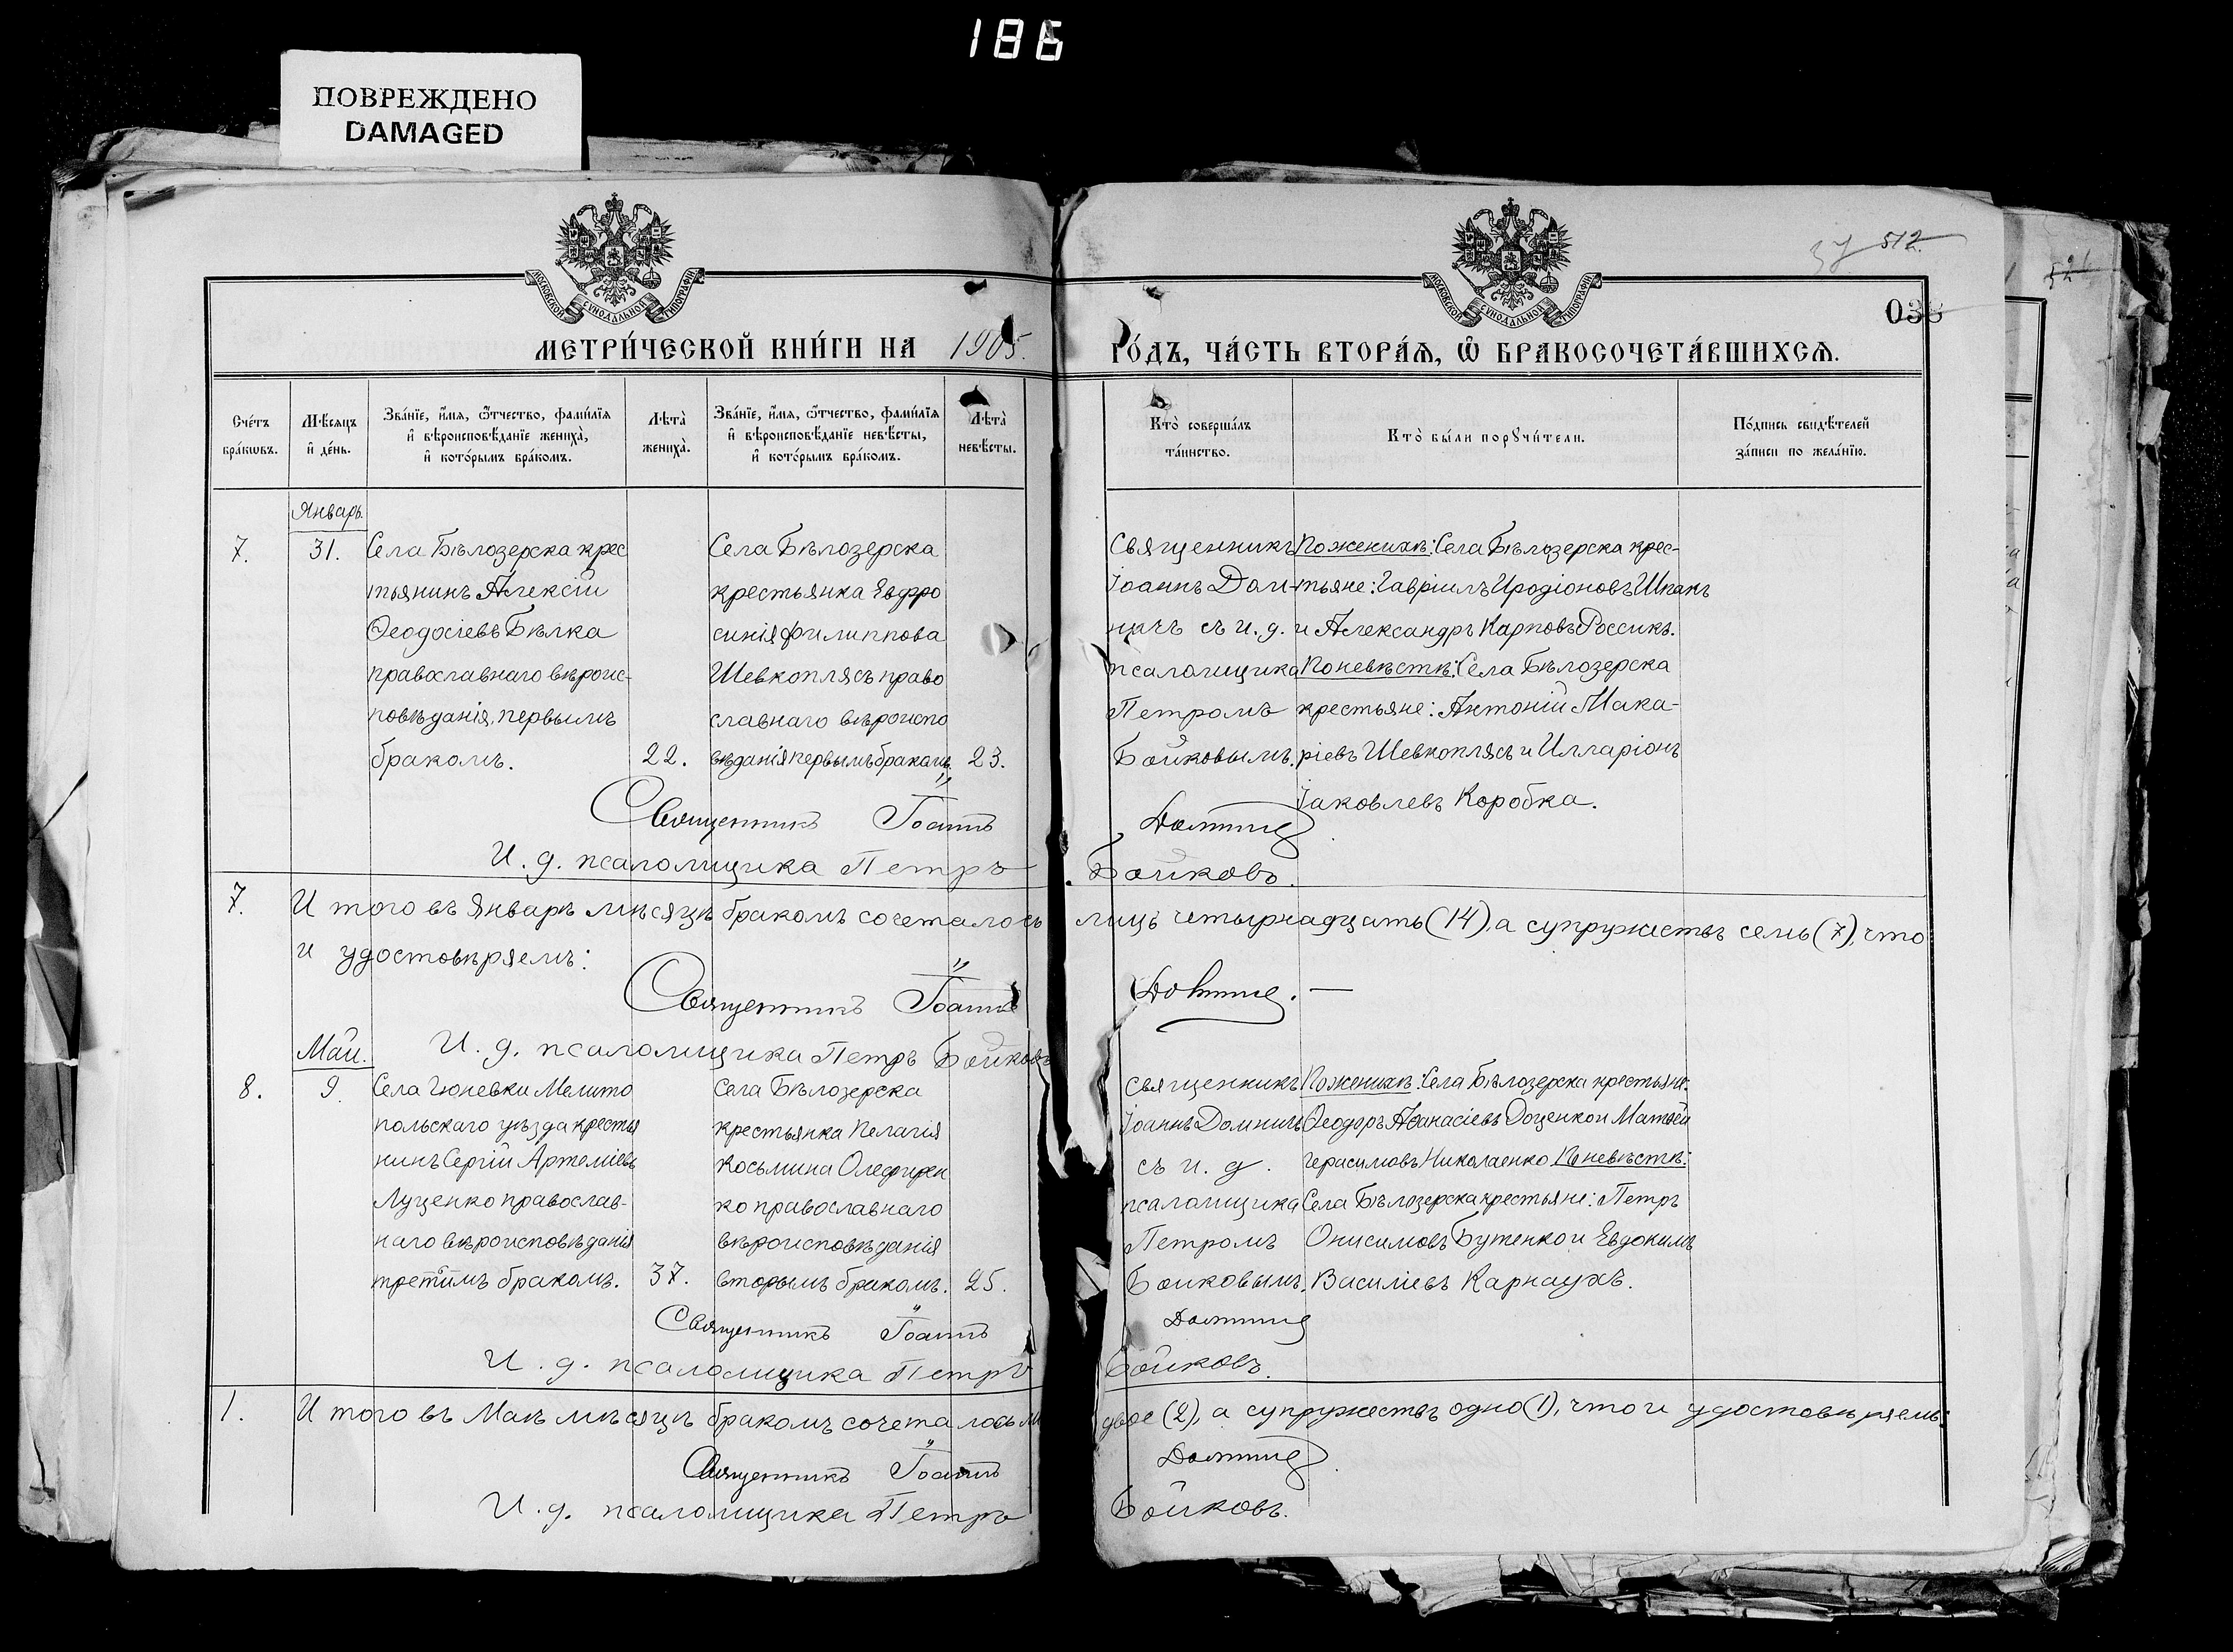 186
ПОВРЕЖДЕНО
DAMAGED
МОСКОВСКОЙ СѴНОДАЛЬНОЙ ТИПОГРАФІИ
МОСКОВСКОЙ СѴНОДАЛЬНОЙ ТИПОГРАФІИ
512.
МЕТРИ́ЧЕСКОЙ КНИ́ГИ НА 1905. ГО́ДЪ, ЧА́СТЬ ВТОРА́Я, Ѽ БРАКОСОЧЕТА́ВШИХСЯ.
Сче́тъ
бра́кѡвъ.
Мѣ́сяцъ
и҆ де́нь.
Зва́нїе, и҆́мя, ѻ҆́тчество, фами́лїя
и҆ вѣроисповѣ́данїе жениха̀,
и҆ кото́рымъ бра́комъ.
Лѣта̀
жениха̀.
Зва́нїе, и҆́мя, ѻ҆́тчество, фами́лїя
и҆ вѣроисповѣ́данїе невѣ́сты,
и҆ кото́рымъ бра́комъ.
Лѣта̀
невѣ́сты.
Кто̀ соверша́лъ
та́инство.
Кто̀ бы́ли порꙋчи́тели.
По́дпись свидѣ́телей
за́писи по жела́нїю.
Январь.
7.
31.
Села Бѣлозерска крес
тьянинъ Алексій
Ѳеодосіевъ Бѣлка
православнаго вѣроис-
повѣданія, первымъ
бракомъ.
22.
Села Бѣлозерска
крестьянка Евфро
синія Филиппова
Шевкоплясъ право
славнаго вѣроиспо
вѣданія первымъ бракомъ.
23.
Священникъ
Іоаннъ Дом-
ничъ съ и. д.
псаломщика
Петромъ
Бойковымъ.
По женихѣ: Села Бѣлозерска крес-
тьяне: Гавріилъ Иродіоновъ Шпакъ
и Александръ Карповъ Россикъ.
По невѣстѣ: Села Бѣлозерска
крестьяне: Антоній Мака-
ріевъ Шевкоплясъ и Илларіонъ
Іаковлевъ Коробка.
Священникъ Іоаннъ Домничъ
И. д. псаломщика Петръ Бойковъ.
7. И того въ Январѣ мѣсяцѣ бракомъ сочеталось лицъ четырнадцать (14), а супружествъ семь (7), что
и удостовѣряемъ:
Священникъ Іоаннъ Домничъ. —
И. д. псаломщика Петръ Бойковъ
Май.
8.
9.
Села Гюневки Мелито
польскаго уѣзда крестья
нинъ Сергій Артеміевъ
Луценко православ-
наго вѣроисповѣданія
третіимъ бракомъ.
37.
Села Бѣлозерска
крестьянка Пелагія
Косьмина Олефирен
ко православнаго
вѣроисповѣданія
вторымъ бракомъ.
25.
Священникъ
Іоаннъ Домничъ
съ и. д.
псаломщика
Петромъ
Бойковымъ.
По женихѣ: Села Бѣлозерска крестьяне:
Ѳеодоръ Аѳанасіевъ Доценко и Матѳей
Герасимовъ Николаенко По невѣстѣ:
Села Бѣлозерска крестьяне: Петръ
Онисимовъ Бутенко и Евдокимъ
Василіевъ Карнаухъ.
Священникъ Іоаннъ Домничъ
И. д. псаломщика Петръ Бойковъ.
1. И того въ Маѣ мѣсяцѣ бракомъ сочеталось двое (2), а супружествъ одно (1), что и удостовѣряемъ:
Священникъ Іоаннъ Домничъ.
И. д. псаломщика Петръ Бойковъ.